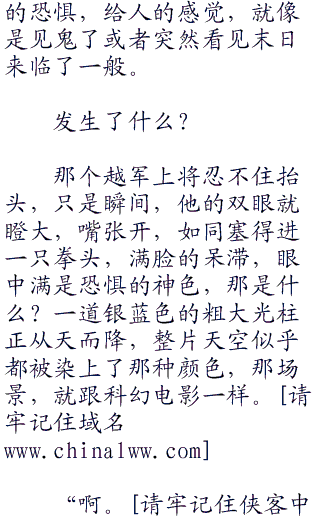 的恐惧，给人的感觉，就像
是见鬼了或者突然看见末日
来临了一般。
发生了什么？
那个越军上将忍不住抬
头，只是瞬间，他的双眼就
瞪大，嘴张开，如同塞得进
一只拳头，满脸的呆滞，眼
中满是恐惧的神色，那是什
么？一道银蓝色的粗大光柱
正从天而降，整片天空似乎
都被染上了那种颜色，那场
景，就跟科幻电影一样。[请
牢记住域名
www.china1ww.com]
“啊。[请牢记住侠客中